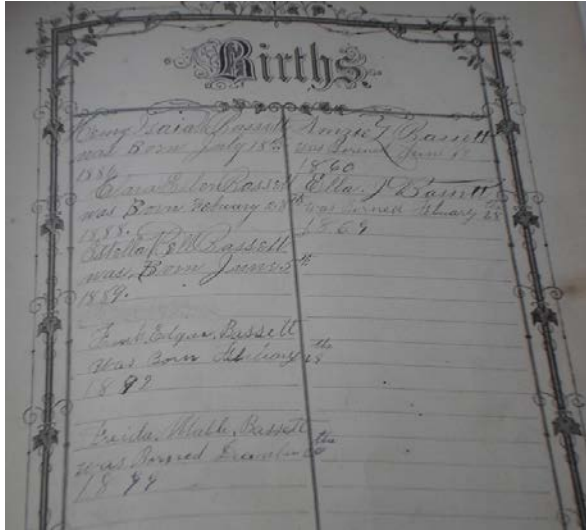 Births.
Henry Isaiah Bassett
was Born July 18th
1886
Clara Ellen Bassett
was Born February 28th
1888.
Estella Bassett
was Born June 5th
1889.
Edgar Bassett
was Born 28th
18
Freida Mable Bassett
was Borned th
18
Bassett
was Borned June
1860
Ella J Bassett
was Borned February 28
1869